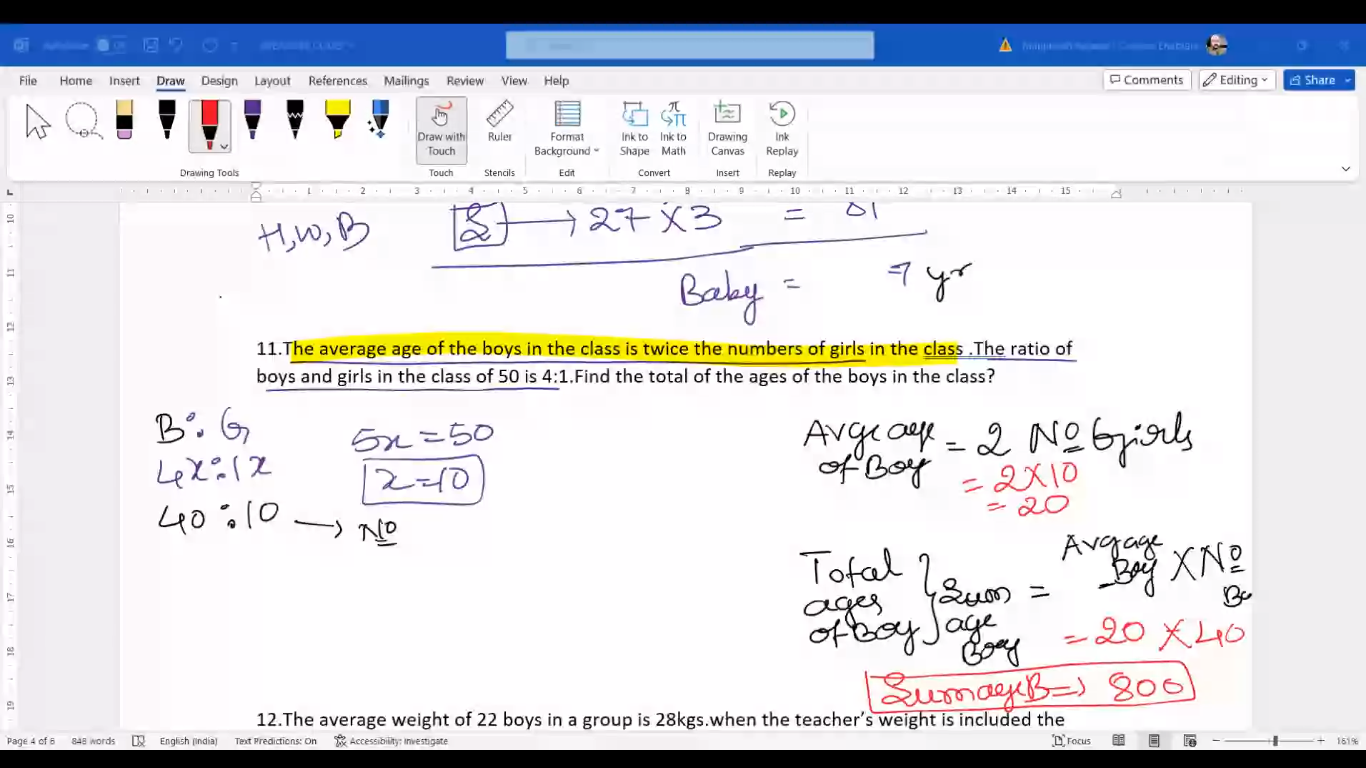 File Home Insert Draw Design Layout References Mailings Review View Help Comments Editing Share
Draw with Touch
Ruler
Format Background
Ink to Shape
Ink to Math
Drawing Canvas
Ink Replay
Drawing Tools Touch Stencils Edit Convert Insert Replay
1 2 3 4 5 6 7 8 9 10 11 12 13 14 15
H, W, B 2 → 27 × 3 = 81
Baby = 7 yr
11.The average age of the boys in the class is twice the numbers of girls in the class .The ratio of
boys and girls in the class of 50 is 4:1.Find the total of the ages of the boys in the class?
B : G
4x : 1x
40 : 10 → No
5x = 50
x = 10
Avge age of Boy = 2 No Girls
= 2 × 10
= 20
Total ages of Boy } Sum age Boy = Avg age Boy × No Bo
= 20 × 40
Sum age B => 800
12.The average weight of 22 boys in a group is 28kgs.when the teacher's weight is included the
Page 4 of 6 848 words English (India) Text Predictions: On Accessibility: Investigate Focus 161%